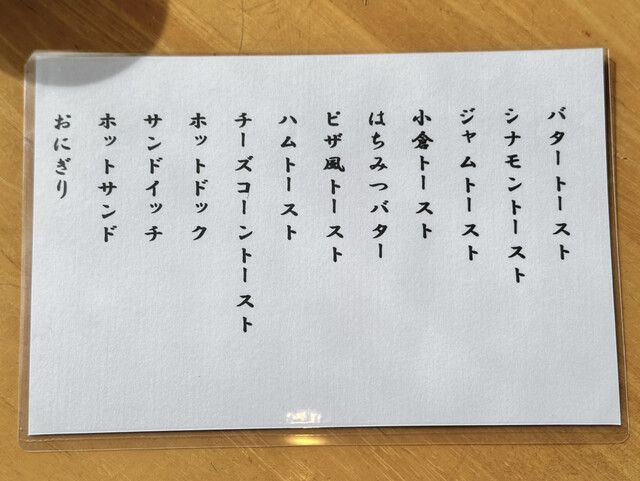 バタートースト
シナモントースト
ジャムトースト
小倉トースト
はちみつバター
ピザ風トースト
ハムトースト
チーズコーントースト
ホットドック
サンドイッチ
ホットサンド
おにぎり